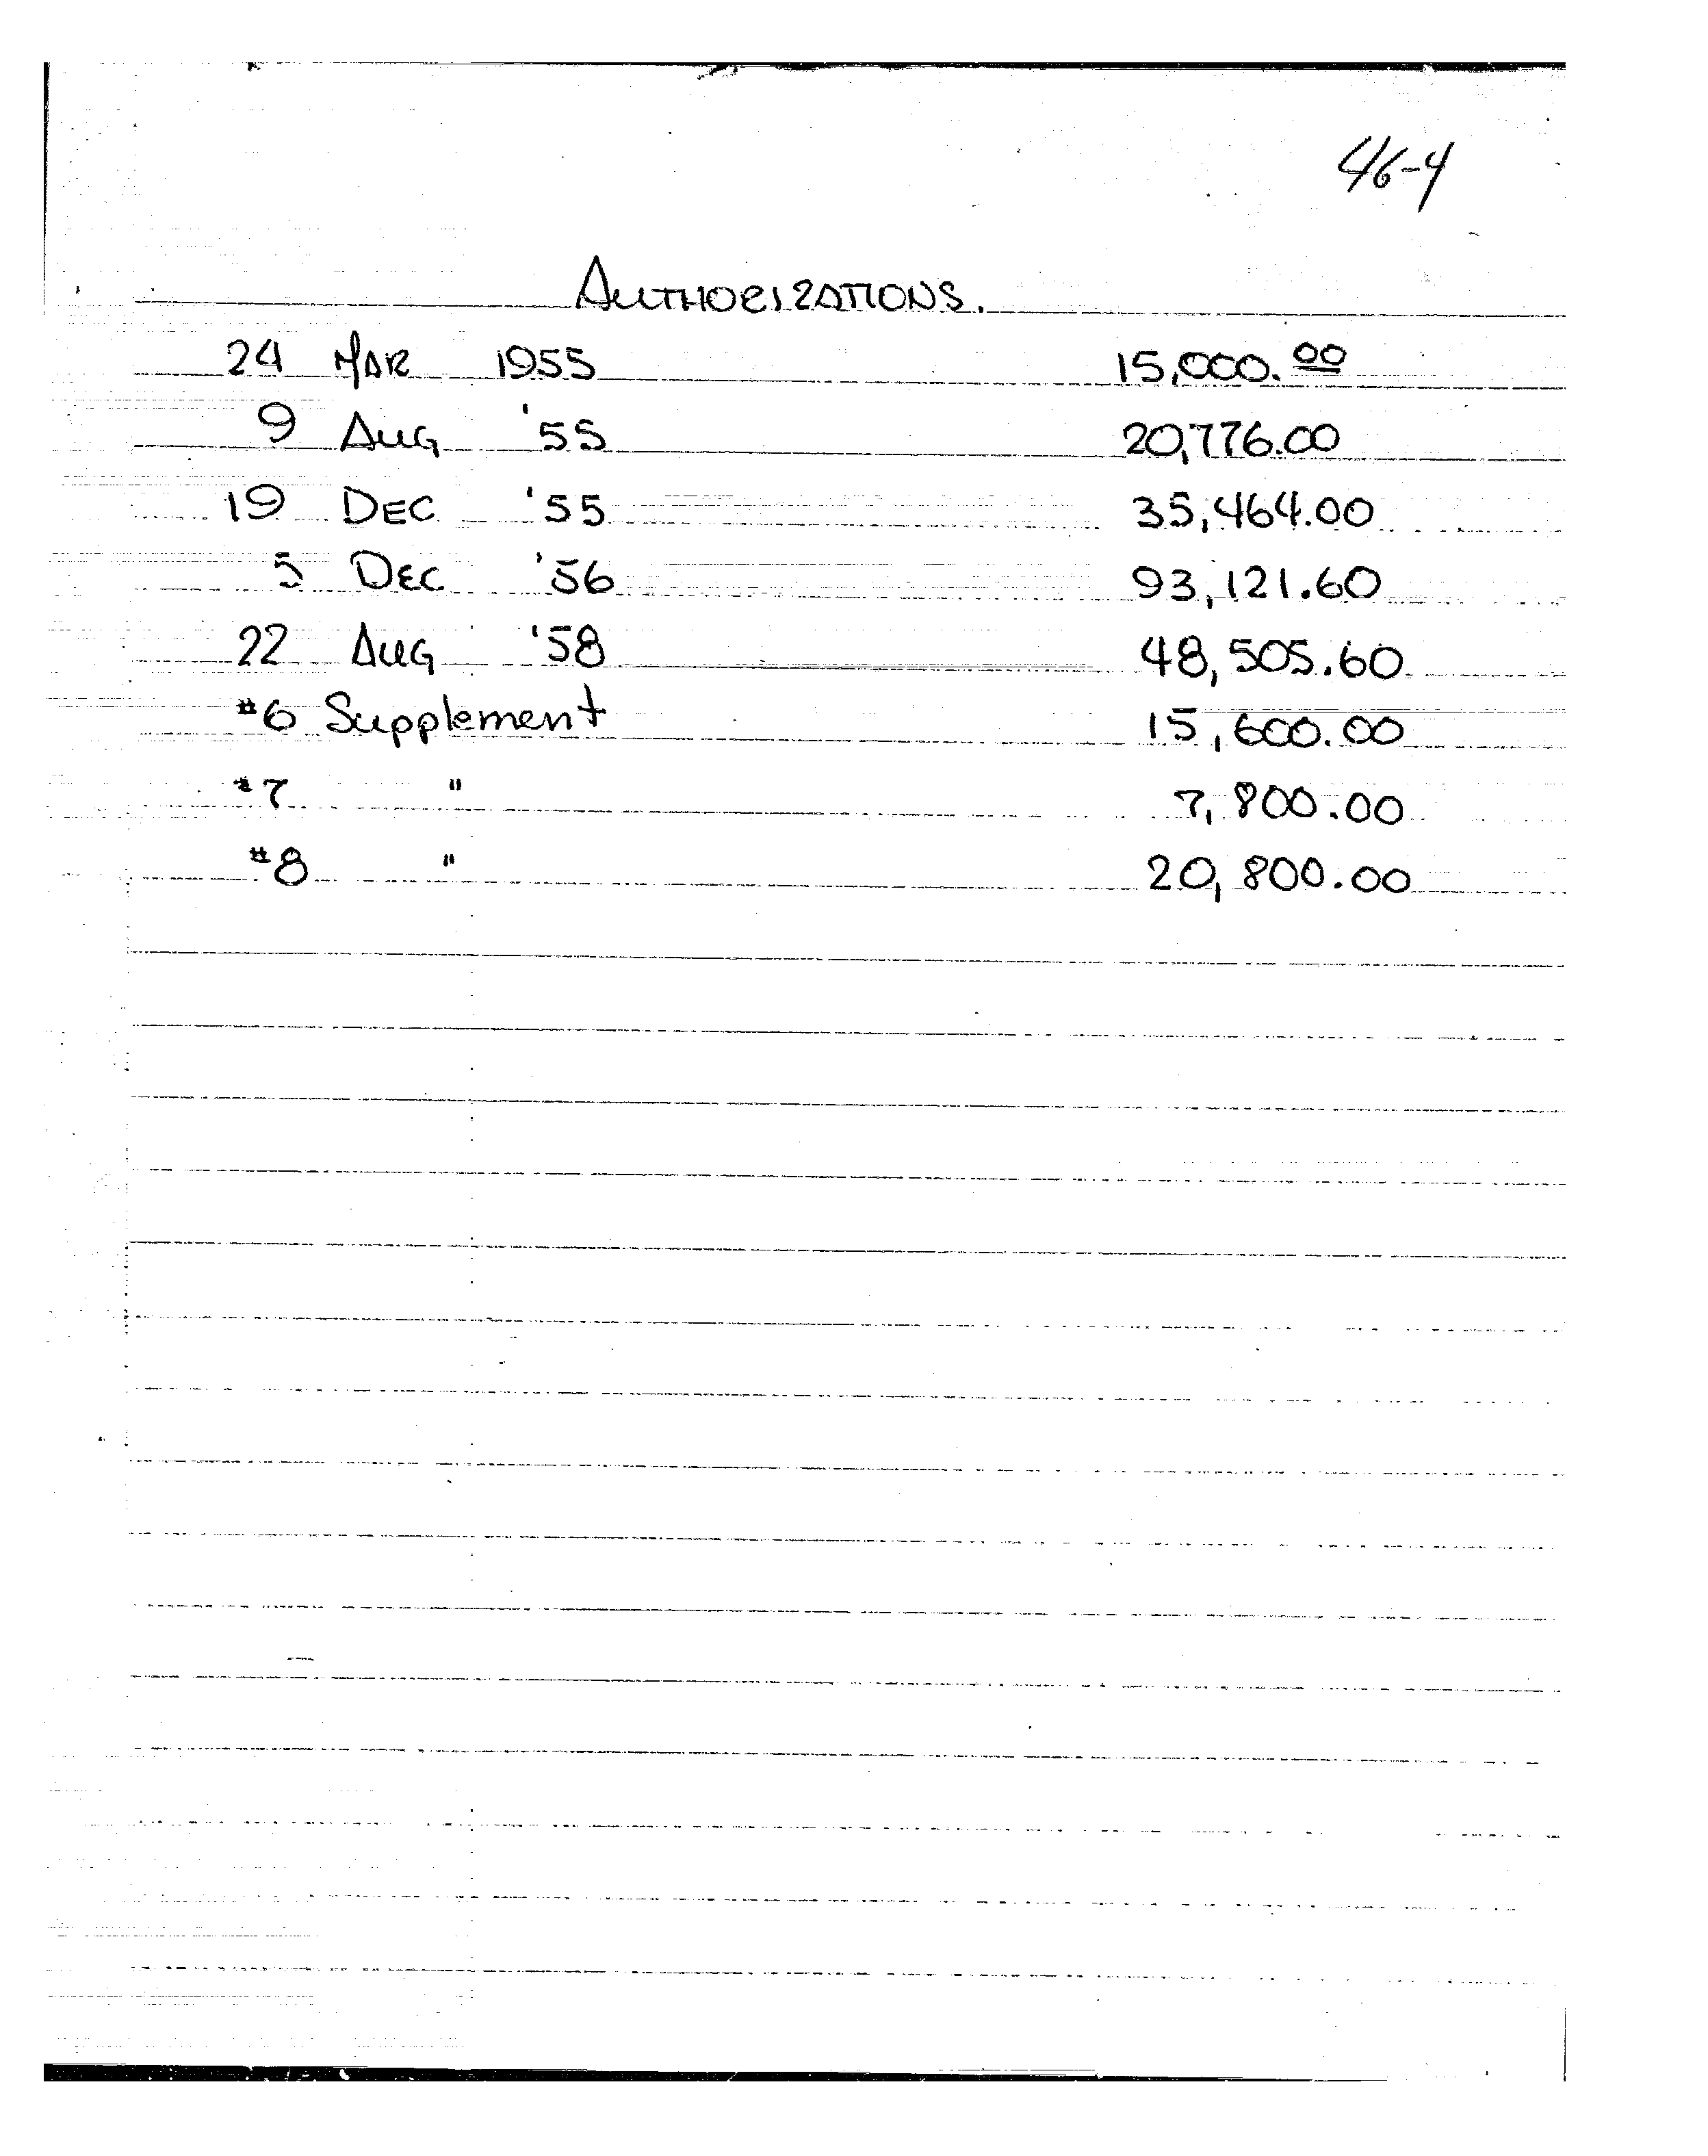 46-4
AUTHORIZATIONS.
24 MAR 1955 15,000.00
9 AUG '55 20,776.00
19 DEC '55 35,464.00
5 DEC '56 93,121.60
22 AUG '58 48,505.60
#6 Supplement 15,600.00
#7 " 7,800.00
#8 " 20,800.00